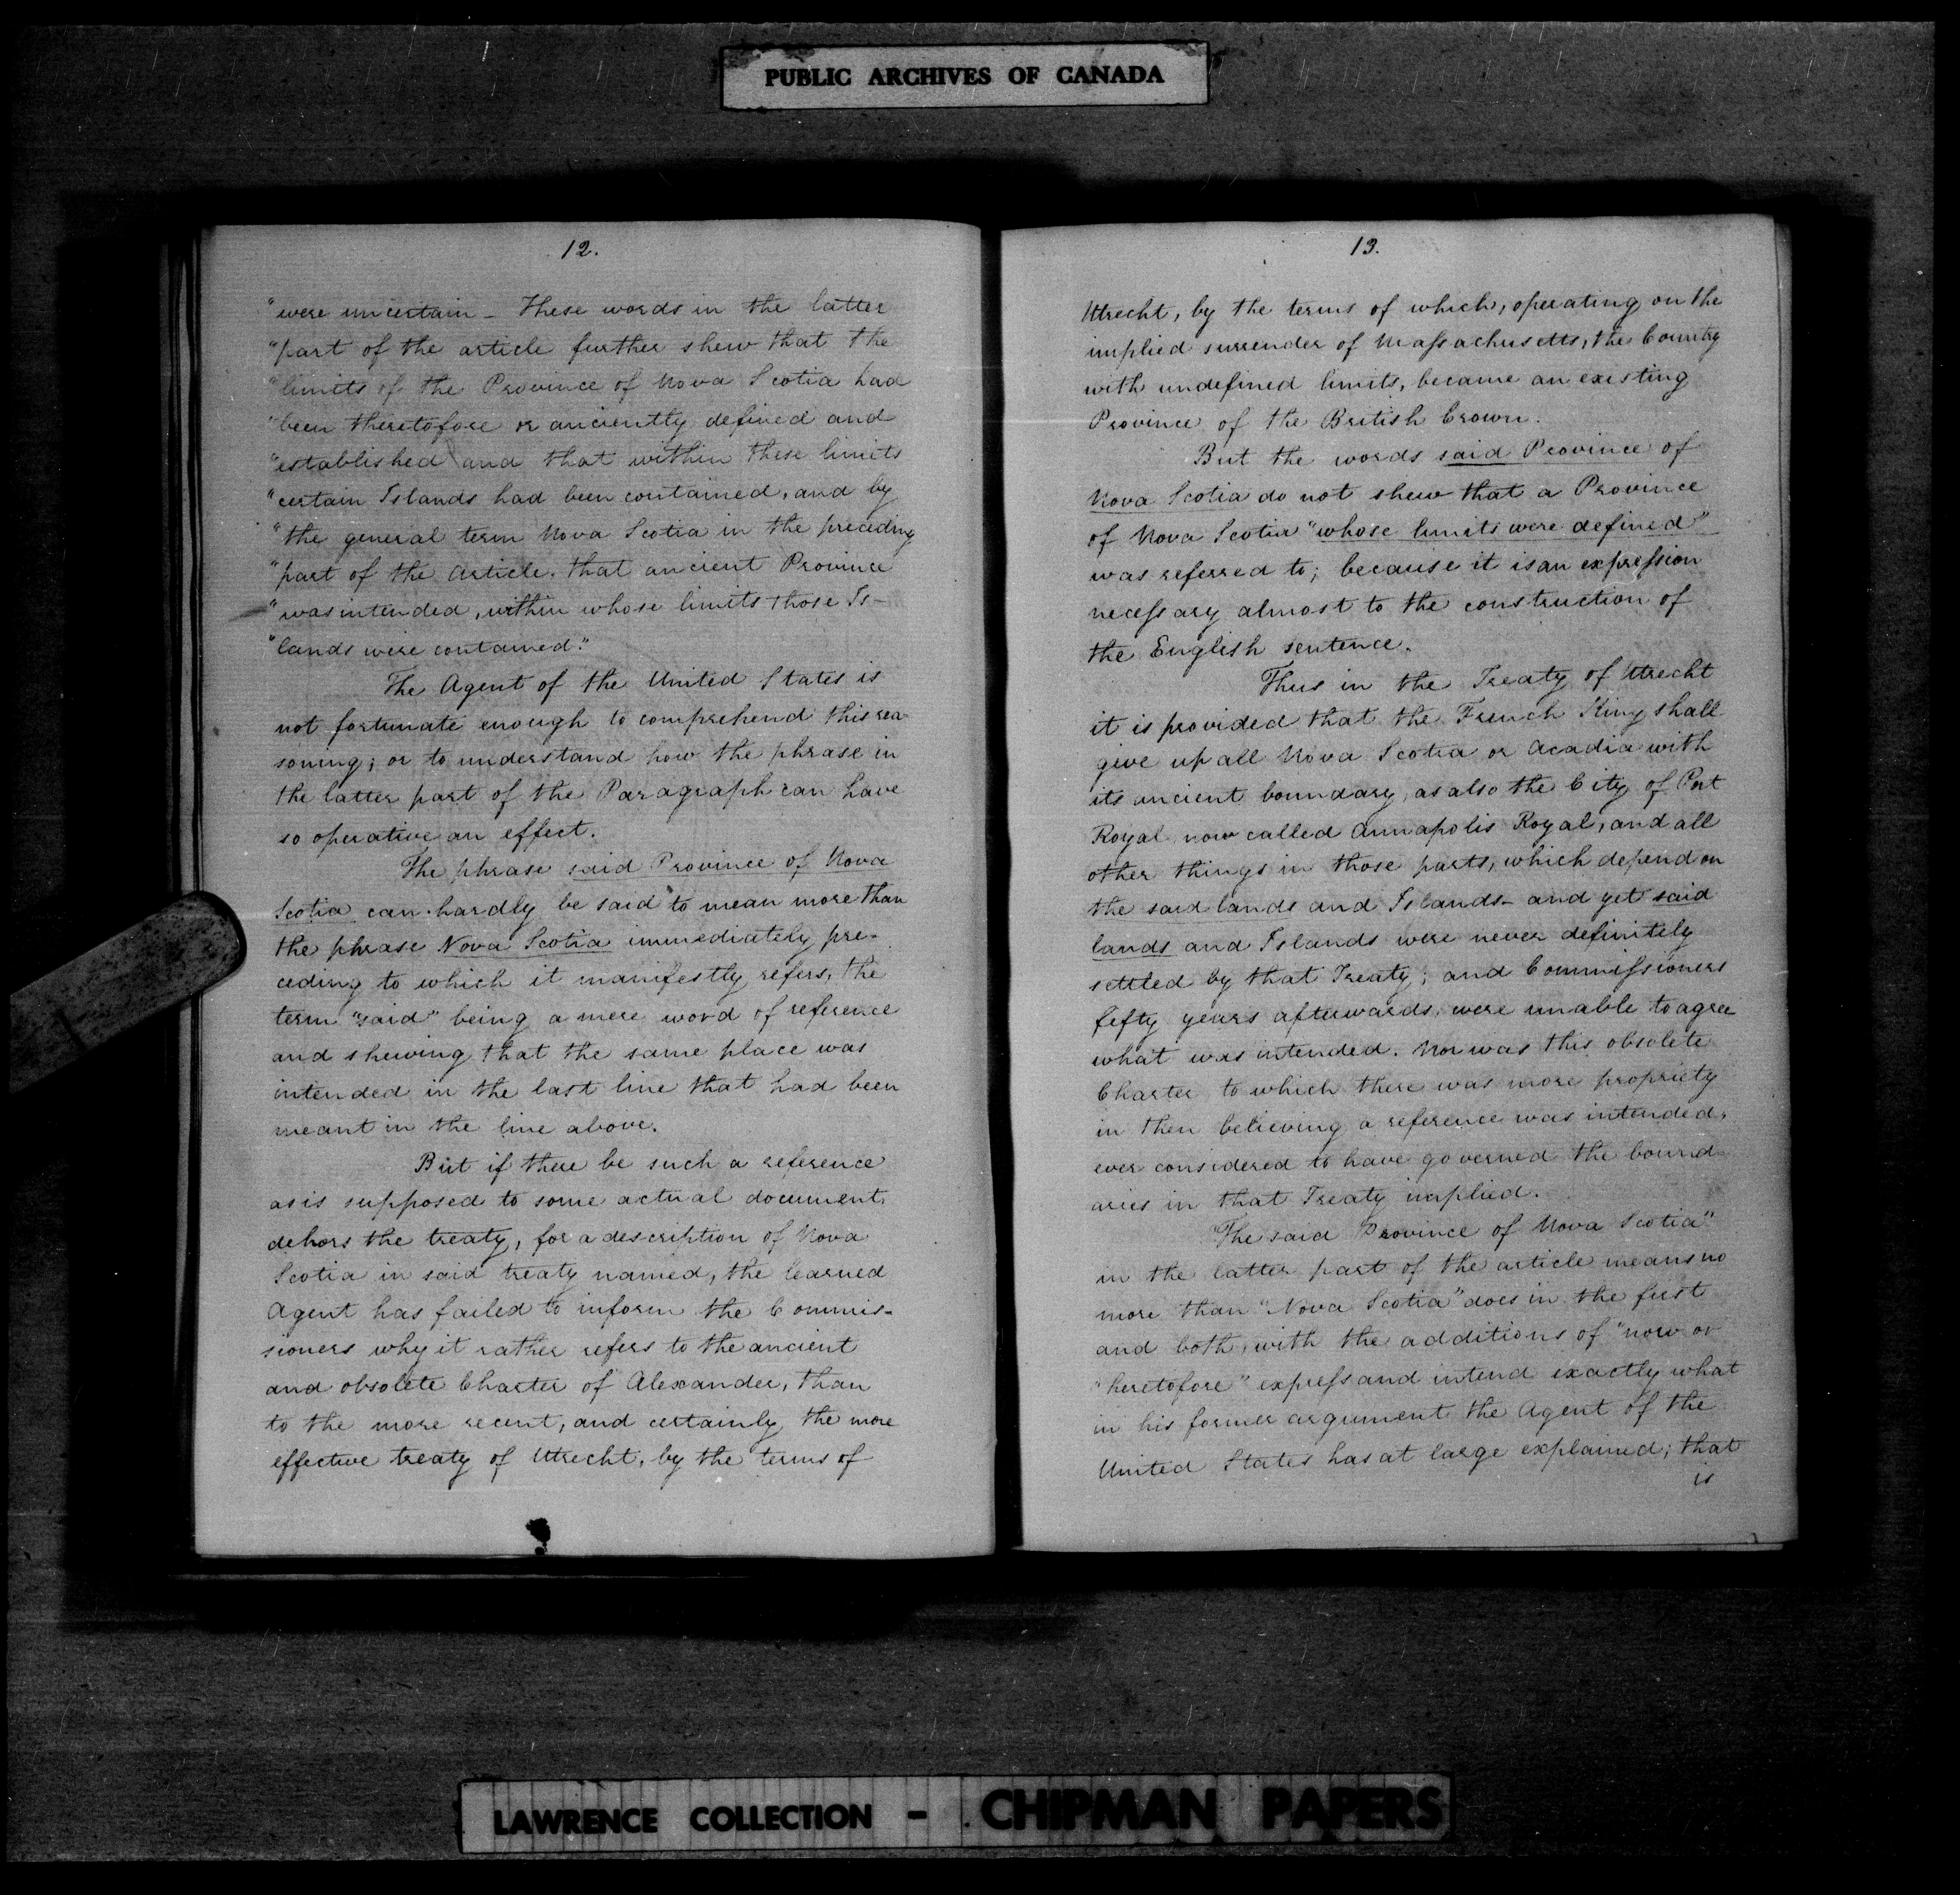 PUBLIC ARCHIVES OF CANADA
12.
"were uncertain - These words in the latter
"part of the article further shew that the
"limits of the Province of Nova Scotia had
"been theretofore or anciently defined and
"established and that within these limits
"certain Islands had been contained, and by
"the general term Nova Scotia in the preceding
"part of the Article, that ancient Province
"was intended, within whose limits those Is-
"lands were contained."
The Agent of the United States is
not fortunate enough to comprehend this rea-
soning; or to understand how the phrase in
the latter part of the Paragraph can have
so operative an effect.
The phrase said Province of Nova
Scotia can hardly be said to mean more than
the phrase Nova Scotia immediately pre-
ceding to which it manifestly refers, the
term "said" being a mere word of reference
and shewing that the same place was
intended in the last line that had been
meant in the line above.
But if there be such a reference
as is supposed to some actual document
dehors the treaty, for a description of Nova
Scotia in said treaty named, the learned
Agent has failed to inform the Commis-
sioners why it rather refers to the ancient
and obsolete Charter of Alexander, than
to the more recent, and certainly the more
effective treaty of Utrecht, by the terms of
13.
Utrecht, by the terms of which, operating on the
implied surrender of Massachusetts, the Country
with undefined limits, became an existing
Province of the British Crown.
But the words said Province of
Nova Scotia do not shew that a Province
of Nova Scotia "whose limits were defined"
was referred to; because it is an expression
necessary almost to the construction of
the English sentence.
Thus in the Treaty of Utrecht
it is provided that the French King shall
give up all Nova Scotia or Acadia with
its ancient boundary, as also the City of Port
Royal now called Annapolis Royal, and all
other things in those parts, which depend on
the said lands and Islands - and yet said
lands and Islands were never definitely
settled by that Treaty; and Commissioners
fefty years afterwards, were unable to agree
what was intended. Nor was this obsolete
Charter to which there was more propriety
in then believing a reference was intended,
ever considered to have governed the bound-
aries in that Treaty implied.
"The said Province of Nova Scotia"
in the latter part of the article means no
more than "Nova Scotia" does in the first
and both, with the additions of "now or
"heretofore" express and intend exactly what
in his former argument the Agent of the
United States has at large explained; that
is
LAWRENCE COLLECTION - CHIPMAN PAPERS